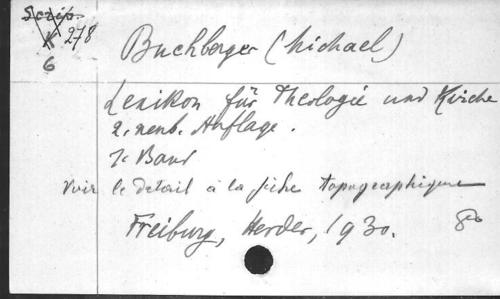 Scrip.
K 278
6
Buchberger (Michael)
Lexikon für Theologie und Kirche
2. neub. Auflage.
1. Band
Voir le détail à la fiche topographique
Freiburg, Herder, 1930. 8°